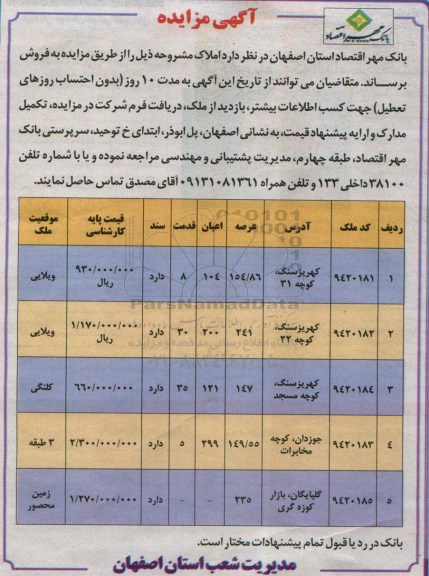 آگهی مزایده
بانک مهر اقتصاد
بانک مهر اقتصاد استان اصفهان در نظر دارد املاک مشروحه ذیل را از طریق مزایده به فروش
برساند. متقاضیان می توانند از تاریخ این آگهی به مدت ۱۰ روز (بدون احتساب روزهای
تعطیل) جهت کسب اطلاعات بیشتر، بازدید از ملک، دریافت فرم شرکت در مزایده، تکمیل
مدارک و ارایه پیشنهاد قیمت، به نشانی اصفهان، پل ابوذر، ابتدای خ توحید، سرپرستی بانک
مهر اقتصاد، طبقه چهارم، مدیریت پشتیبانی و مهندسی مراجعه نموده و یا با شماره تلفن
۳۸۱۰۰ داخلی ۱۳۳ و تلفن همراه ۰۹۱۳۱۰۸۱۳۶۱ آقای مصدق تماس حاصل نمایند.
ردیف کد ملک آدرس عرصه اعیان قدمت سند قیمت پایه کارشناسی موقعیت ملک
۱ ۹۴۲۰۱۸۱ کهریزسنگ، کوچه ۳۱ ۱۵۴/۸۶ ۱۰۴ ۸ دارد ۹۳۰/۰۰۰/۰۰۰ ریال ویلایی
۲ ۹۴۲۰۱۸۲ کهریزسنگ، کوچه ۲۲ ۲۴۱ ۲۰۰ ۳۰ دارد ۱/۱۷۰/۰۰۰/۰۰۰ ریال ویلایی
۳ ۹۴۲۰۱۸۴ کهریزسنگ، کوچه مسجد ۱۴۷ ۱۲۱ ۳۵ دارد ۶۶۰/۰۰۰/۰۰۰ کلنگی
۴ ۹۴۲۰۱۸۳ جوزدان، کوچه مخابرات ۱۴۹/۵۵ ۲۹۹ ۵ دارد ۲/۳۰۰/۰۰۰/۰۰۰ ۳ طبقه
۵ ۹۴۲۰۱۸۵ گلپایگان، بازار کوزه گری ۲۳۵ - - دارد ۱/۲۷۰/۰۰۰/۰۰۰ زمین محصور
ParsNamadData
بانک در رد یا قبول تمام پیشنهادات مختار است.
مدیریت شعب استان اصفهان